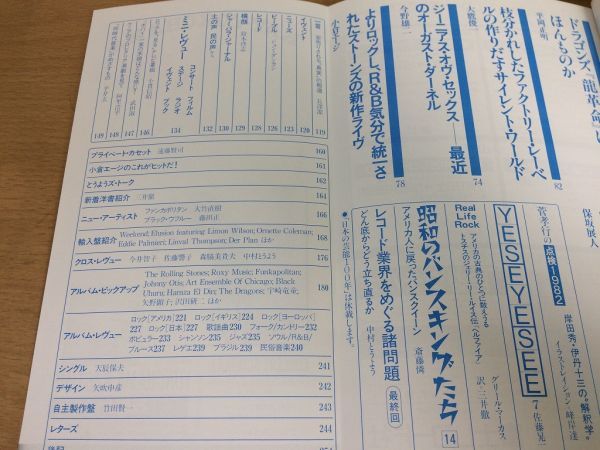 ドラゴンズ『龍革命』は
ほんものか
平岡正明
82
枝分かれしたファクトリー・レーベ
ルの作りだすサイレント・ワールド
大鷹俊一
74
ジーニアス・オヴ・セックス——最近
のオーガスト・ダーネル
今野雄二
78
よりロックしR&B気分で統一さ
れたストーンズの新作ライヴ
小倉エージ
保坂展人
菅孝行の点検1982
岸田秀・伊丹十三の"解釈学"
イラストレイション／峰岸達
YESEYESEE
7
佐藤晃一
Real
Life
Rock
アメリカの古典のひとつに数えうる
トスチスのジェリー・リー・ルイス伝『ヘルファイア』
グリール・マーカス
訳・三井徹
昭和のバンスキングたち
14
アメリカ人に戻ったバンスクイーン
斎藤憐
レコード業界をめぐる諸問題
最終回
どん底からどう立ち直るか
中村とうよう
●「日本の芸能一〇〇年」は休載します。
119
イヴェント
120
ニューズ
123
ピープル
126
レコード
128
横顔
鈴木啓志
129
ショーバス・ジャーナル
130
土の声・民の声
132
ミニ・レヴュー
コンサート
フィルム
ステージ
ラジオ
イヴェント
ブック
134
146
147
148
149
プライベート・カセット 遠藤賢司 160
小倉エージのこれがヒットだ！ 161
とうようズ・トーク 162
新着洋書紹介 三井徹 164
ニュー・アーティスト ファンカポリタン 大竹直樹
ブラック・ウフルー 藤田正 166
輸入盤紹介 Weekend; Elusion featuring Limon Wilson; Ornette Coleman;
Eddie Palmieri; Linval Thompson; Der Plan ほか 168
クロス・レヴュー 今井智子 佐藤響子 森脇美貴夫 中村とうよう 176
アルバム・ピックアップ The Rolling Stones; Roxy Music; Funkapolitan;
Johnny Otis; Art Ensemble Of Chicago; Black
Uhuru; Hamza El Din; The Dragons; 宇崎竜童;
矢野顕子; 沢田研二 ほか 180
アルバム・レヴュー ロック［アメリカ］221 ロック［イギリス］224 ロック［ヨーロッパ］
227 ロック［日本］227 歌謡曲230 フォーク／カントリー232
ポピュラー233 シャンソン235 ジャズ235 ソウル／R&B／
ブルース237 レゲエ239 ブラジル239 民俗音楽240
シングル 大辰保夫 241
デザイン 矢吹申彦 242
自主製作盤 竹田賢一 243
レターズ 244
後記 254